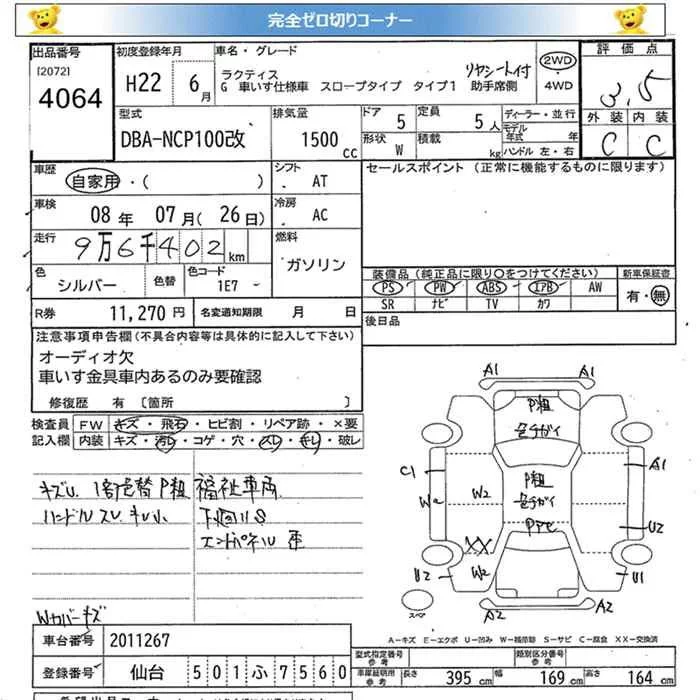 完全ゼロ切りコーナー
出品番号
[2072]
4064
初度登録年月
H22 6月
車名・グレード
ラクティス
G 車いす仕様車 スロープタイプ タイプ1
リヤシート付
助手席側
2WD
4WD
評価点
3.5
外装 内装
C C
型式
DBA-NCP100改
排気量
1500 CC
ドア 5
形状 W
定員 5人
積載 kg
ディーラー・並行
モデル年式 年
ハンドル 左・右
車歴
自家用・( )
シフト
AT
セールスポイント (正常に機能するものに限ります)
車検
08年 07月(26日)
冷房
AC
走行
9万6千402km
燃料
ガソリン
色
シルバー
色替
色コード
1E7
装備品(純正品に限り○をつけてください)
PS PW ABS エアB AW
SR ナビ TV カワ
新車保証書
有・無
R券 11,270円
名変通知期限 月 日
後日品
注意事項申告欄(不具合内容等は具体的に記入して下さい)
オーディオ欠
車いす金具車内あるのみ要確認
修復歴 有 〔箇所 〕
検査員
記入欄
FW キズ・飛石・ヒビ割・リペア跡・×要
内装 キズ・汚レ・コゲ・穴・スレ・キレ・破レ
キズU. 1部色替 P粗 福祉車両
ハンドルスレ キレ小 下回りS
エンドパネル
Wカバーキズ
A1 A1
P粗
色チガイ
C1 A1
W2 W2
P粗
色チガイ
U2
XX
U2 W2 U1
スペア
A2 A2
A－キズ E－エクボ U－凹み W－補修跡 S－サビ C－腐食 XX－交換済
車台番号 2011267
登録番号 仙台 501ふ7560
型式指定番号
参考
類別区分番号
参考
車庫証明用
参考
長さ 395cm 幅 169cm 高さ 164cm